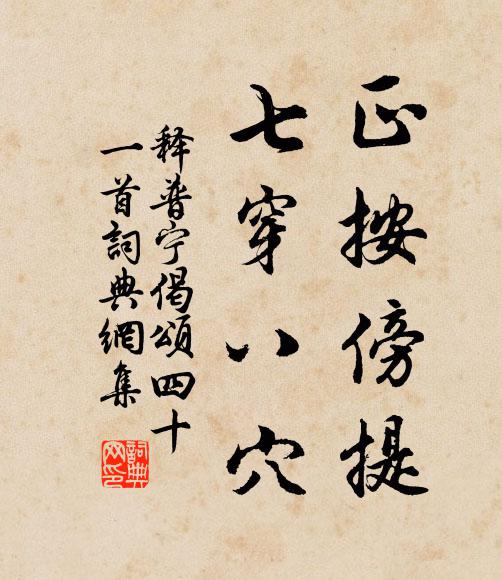 正按傍提
七穿八穴
釋普宁偈頌四十
一首詞典網集
詞典
网印